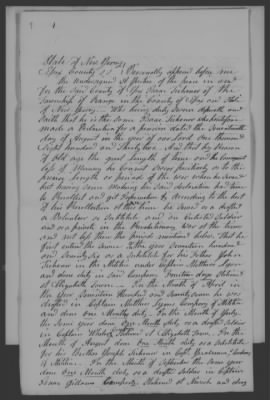 State of New Jersey
Essex County SS } Personally appeared before me
the undersigned a Justice of the peace in and
for the said County of Essex Isaac Sickenor of the
Township of Orange in the County of Essex and State
of New Jersey who being duly Sworn deposeth and
saith that he is the same Isaac Sickenor who heretofore
made a Declaration for a pension dated the
day of August in the year of our Lord One thousand
Eight hundred and Thirty two. And that by reason
of old age the great length of time and the consequent
loss of Memory he cannot swear positively as to the
precise length or periods of his
but having since Making his said declaration had time
to Recollect and get Information & According to the best
of his Recollection
a Volunteer or Substitute and an Enlisted Soldier
and as a private in the Revolutionary War at the times
and not less than the periods mentioned below. That he
first entered the same In the year Seventeen hundred
and Seventy six as a Substitute for his Father
Sickenor in the Militia under Captain Mathew Lyon
and done duty in said Company fourteen days Stationed
at Elizabeth Town. In the Month of April in
the year Seventeen Hundred and Seventy Seven he was
drafted in Captain Mathew Lyons Company of Militia
and done one Months duty. In the Month of July
the same year done One Month duty as a drafted Soldier
in Captain Stationed at Elizabeth Town. In the
Month of August done One Month duty as a substitute
for his Brother Joseph Sickenor in Capt.
of Militia. In the Month of September the same year
done One Month duty as a drafted Soldier in Captain
Isaac Gillams Company Stationed at Newark and